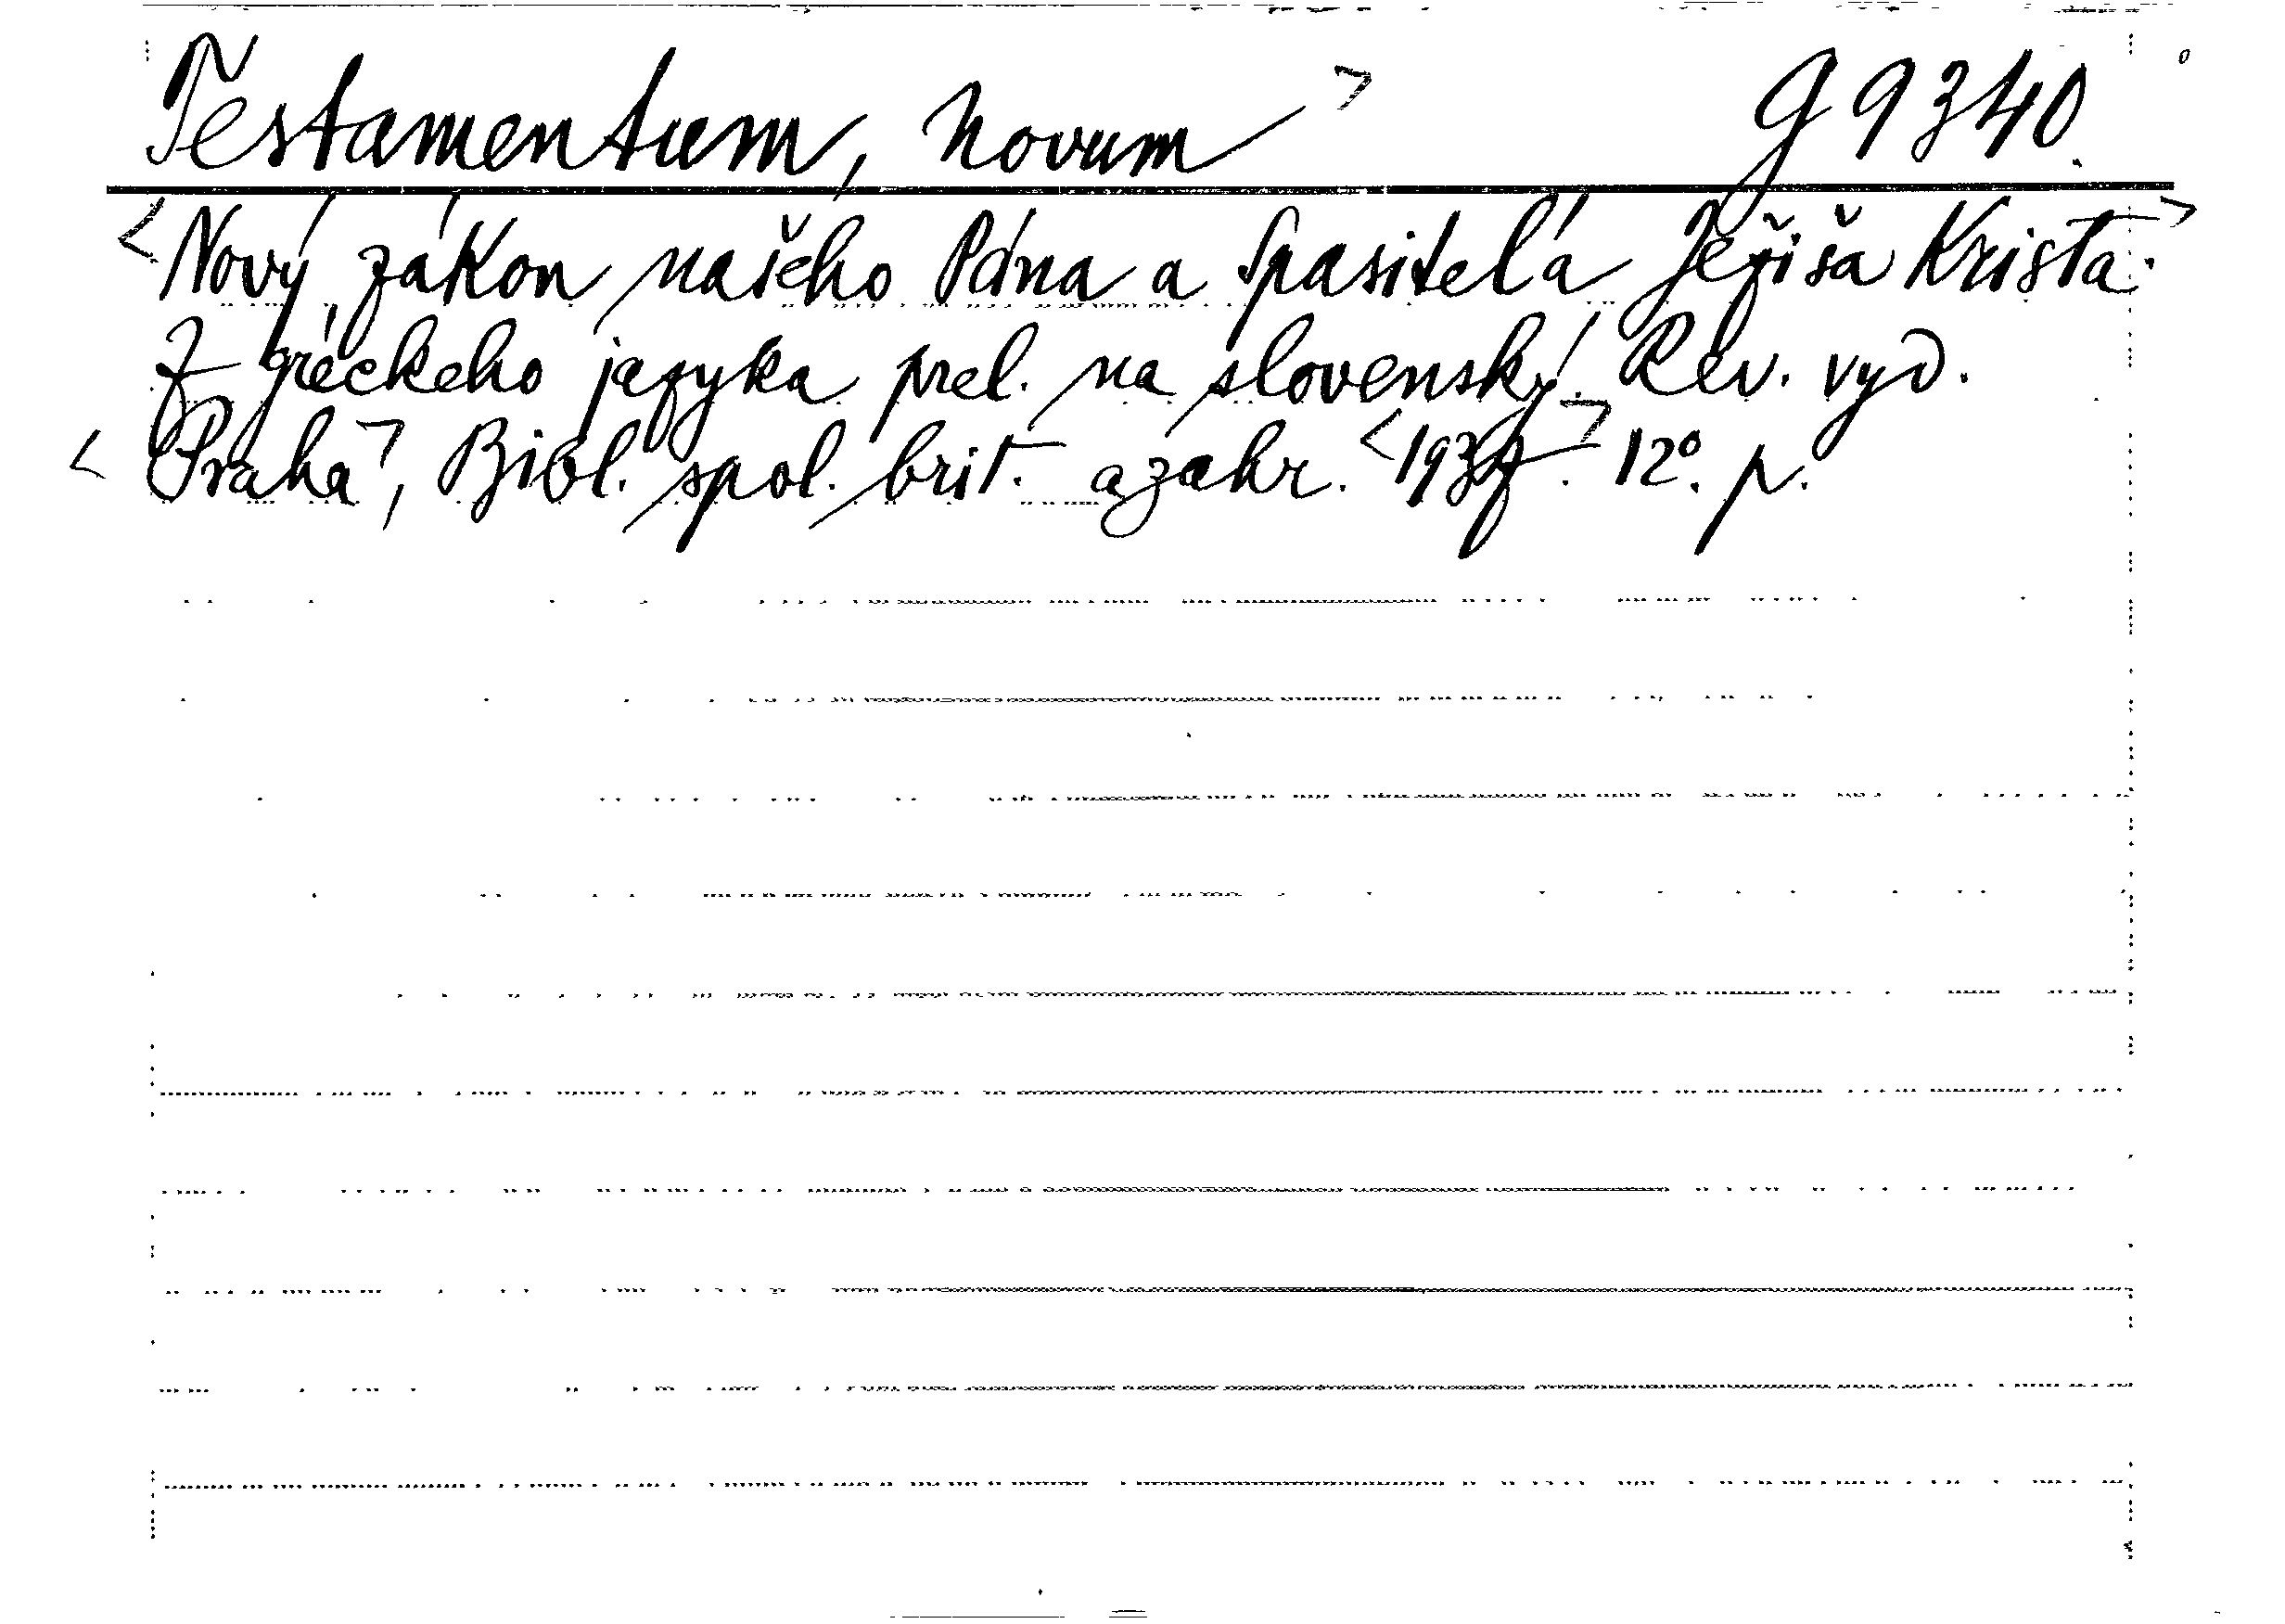 Testamentum, Novum > G 9340.
<Nový zákon našeho Pána a Spasiteľa Ježiša Krista.>
Z gréckeho jazyka prel. na slovenský. Rev. vyd.
<Praha>, Bibl. spol. brit. a zahr. <1937>. 12°. p.